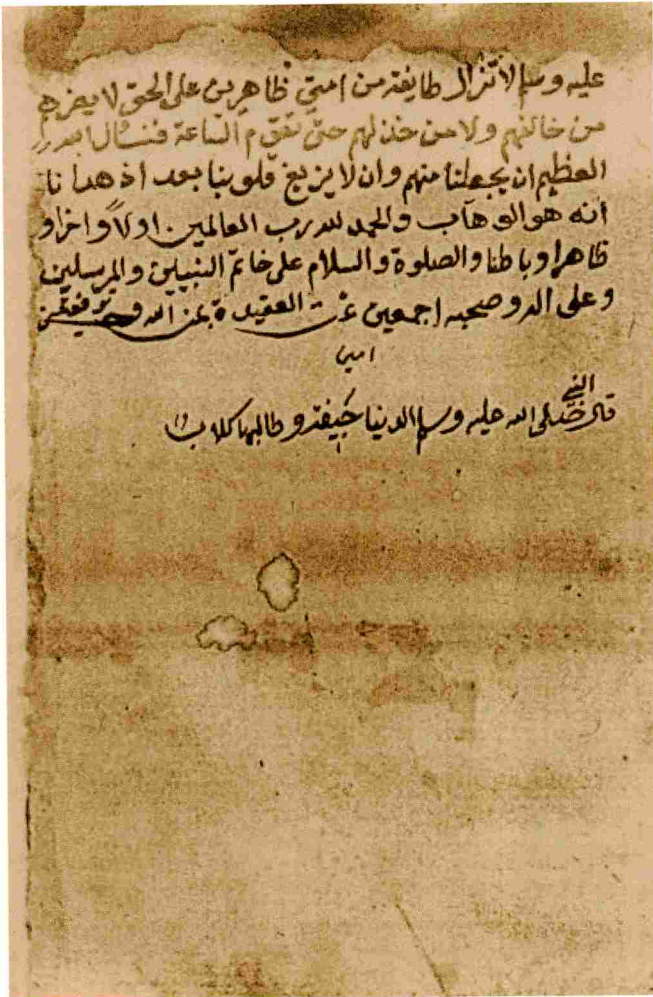 عليه وسلم لا تزال طايفة من امتي ظاهرين على الحق لا يضرهم
من خالفهم ولا من خذلهم حتى تقوم الساعة فنسال الله
العظيم ان يجعلنا منهم وان لا يزيغ قلوبنا بعد اذ هدانا
انه هو الوهاب والحمد لله رب العالمين اولاً واخرا و
ظاهرا وباطنا والصلوة والسلام على خاتم النبيين والمرسلين
وعلى اله وصحبه اجمعين تمت العقيدة بمن الله وتوفيقه
امين
قال النبي صلى الله عليه وسلم الدنيا جيفة وطالبها كلاب